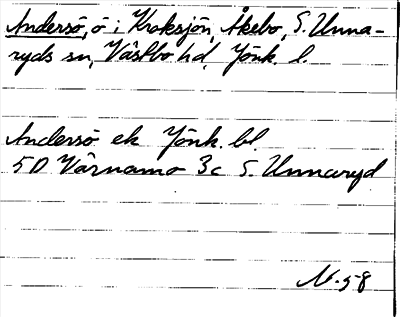 Andersö, ö i Kroksjön, Åkebo, S. Unna-
ryds sn, Västbo hd, Jönk. l.
Andersö ek Jönk. bl.
5D Värnamo 3c S. Unnaryd
N.58